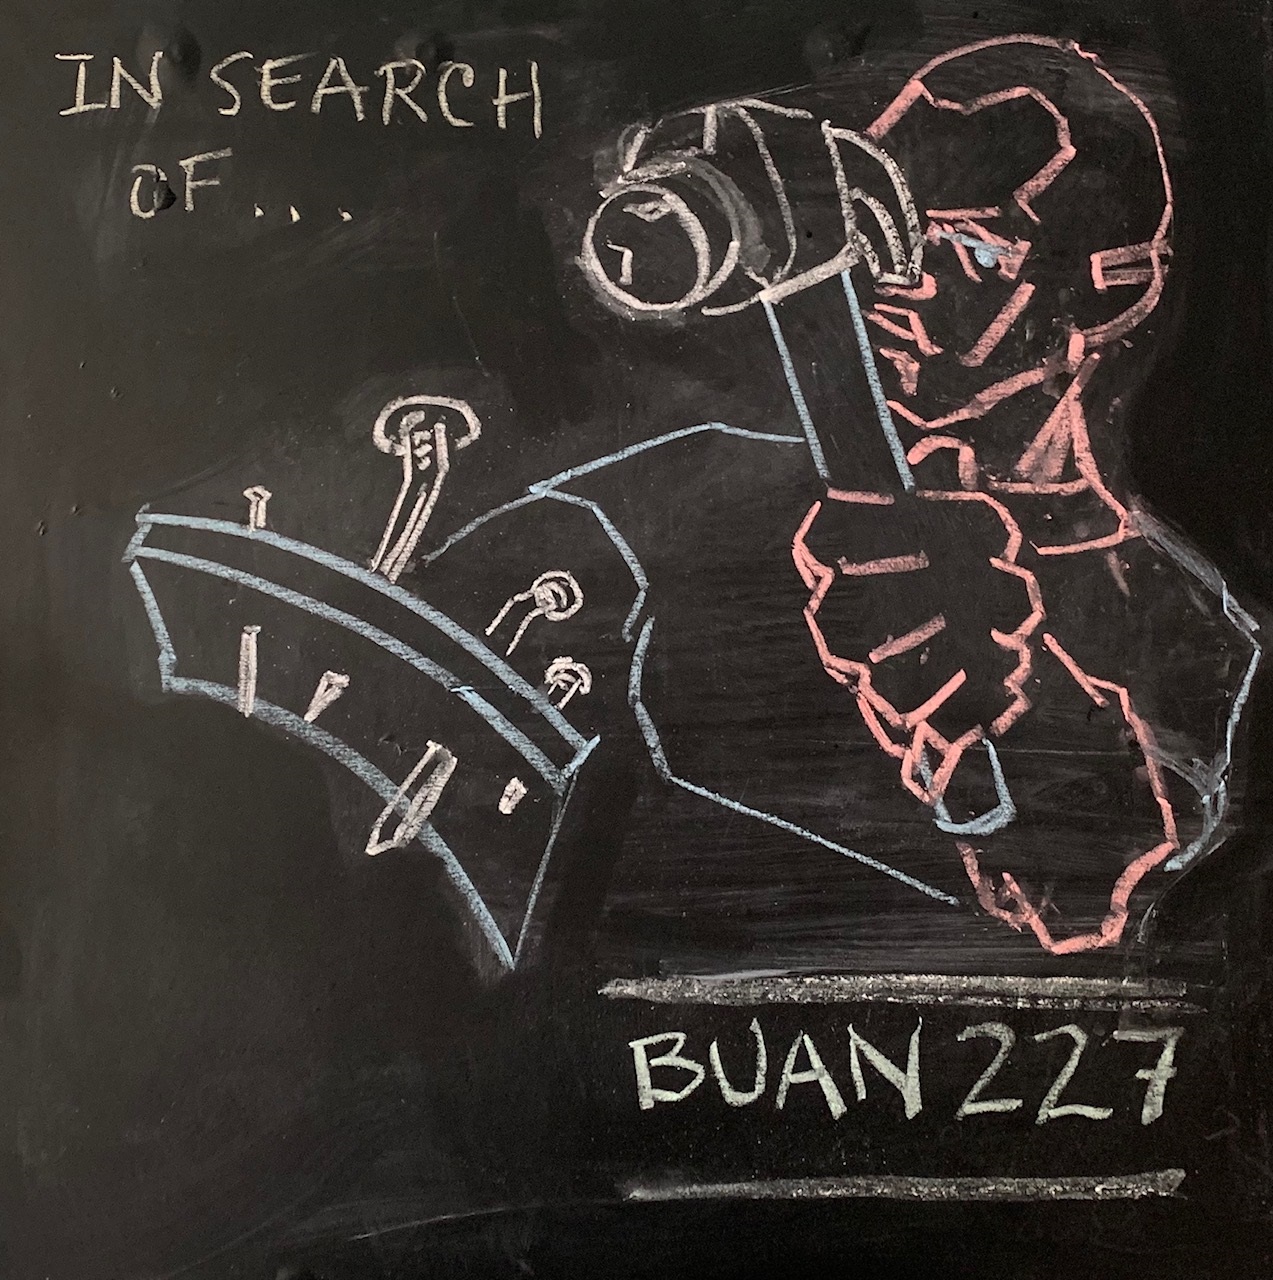 IN SEARCH
OF...
BUAN 227